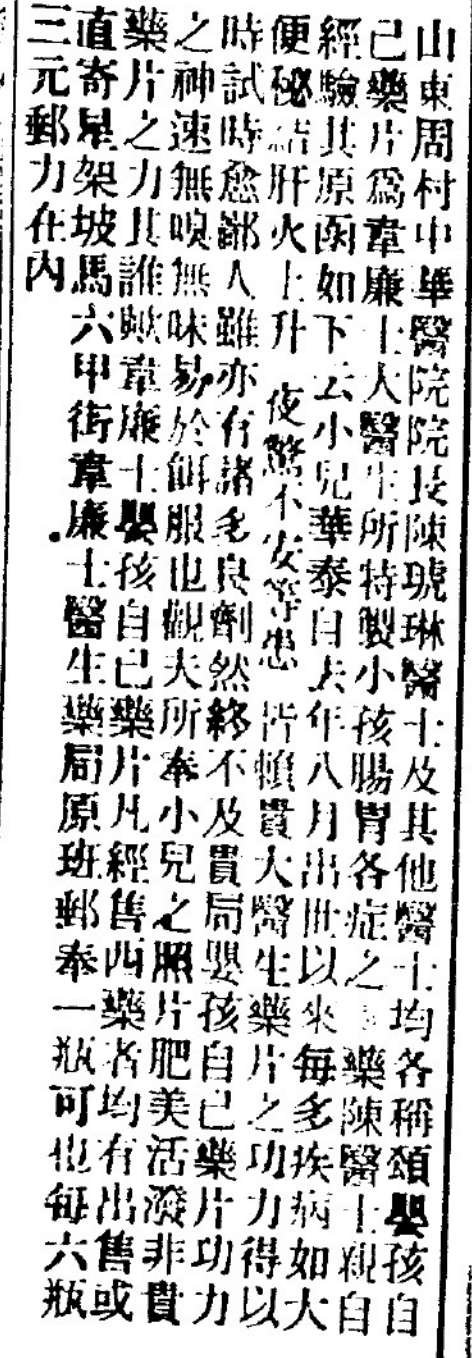 山東周村中華醫院院長陳琥琳醫士及其他醫士均各稱頌嬰孩自
己藥片爲韋廉士大醫生所特製小孩腸胃各症之藥陳醫士親自
經驗其原函如下云小兒華泰自去年八月出世以來每多疾病如大
便秘結肝火上升夜驚不安等患皆賴貴大醫生藥片之功力得以
時試時愈鄙人雖亦有諸多良劑然終不及貴局嬰孩自己藥片功力
之神速無嗅無味易於餌服也觀夫所奉小兒之照片肥美活潑非貴
藥片之力其誰歟韋廉士嬰孩自己藥片凡經售西藥者均有出售或
直寄星架坡馬六甲街韋廉士醫生藥局原班郵奉一瓶可也每六瓶
三元郵力在內